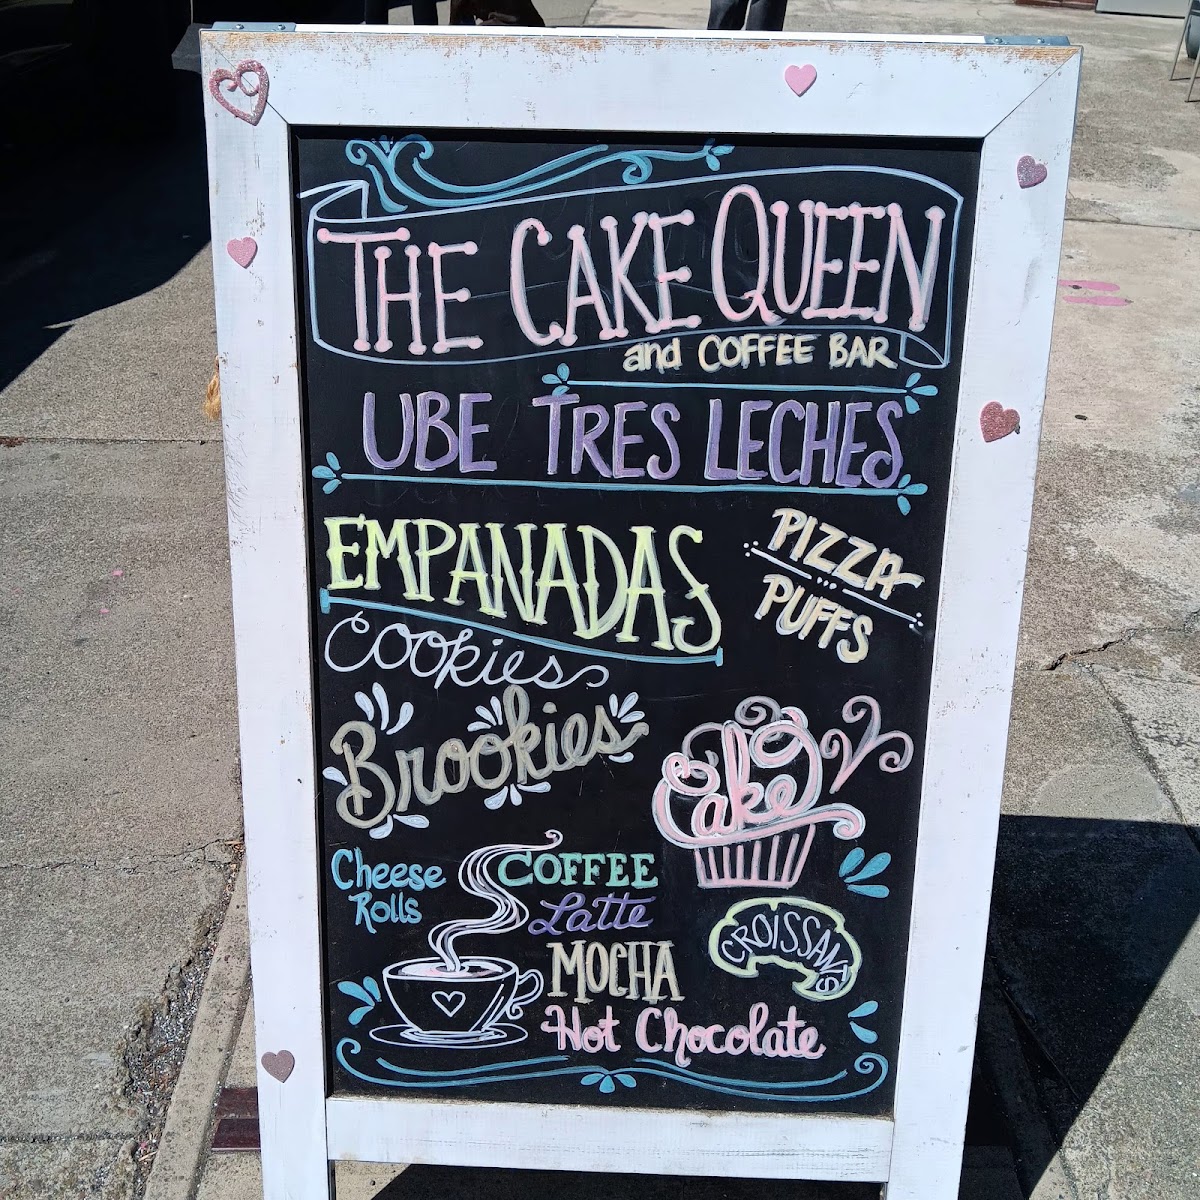 THE CAKE QUEEN
and COFFEE BAR
UBE TRES LECHES
EMPANADAS
PIZZA
PUFFS
Cookies
Brookies
Cake
Cheese
Rolls
COFFEE
Latte
MOCHA
Hot Chocolate
CROISSANTS